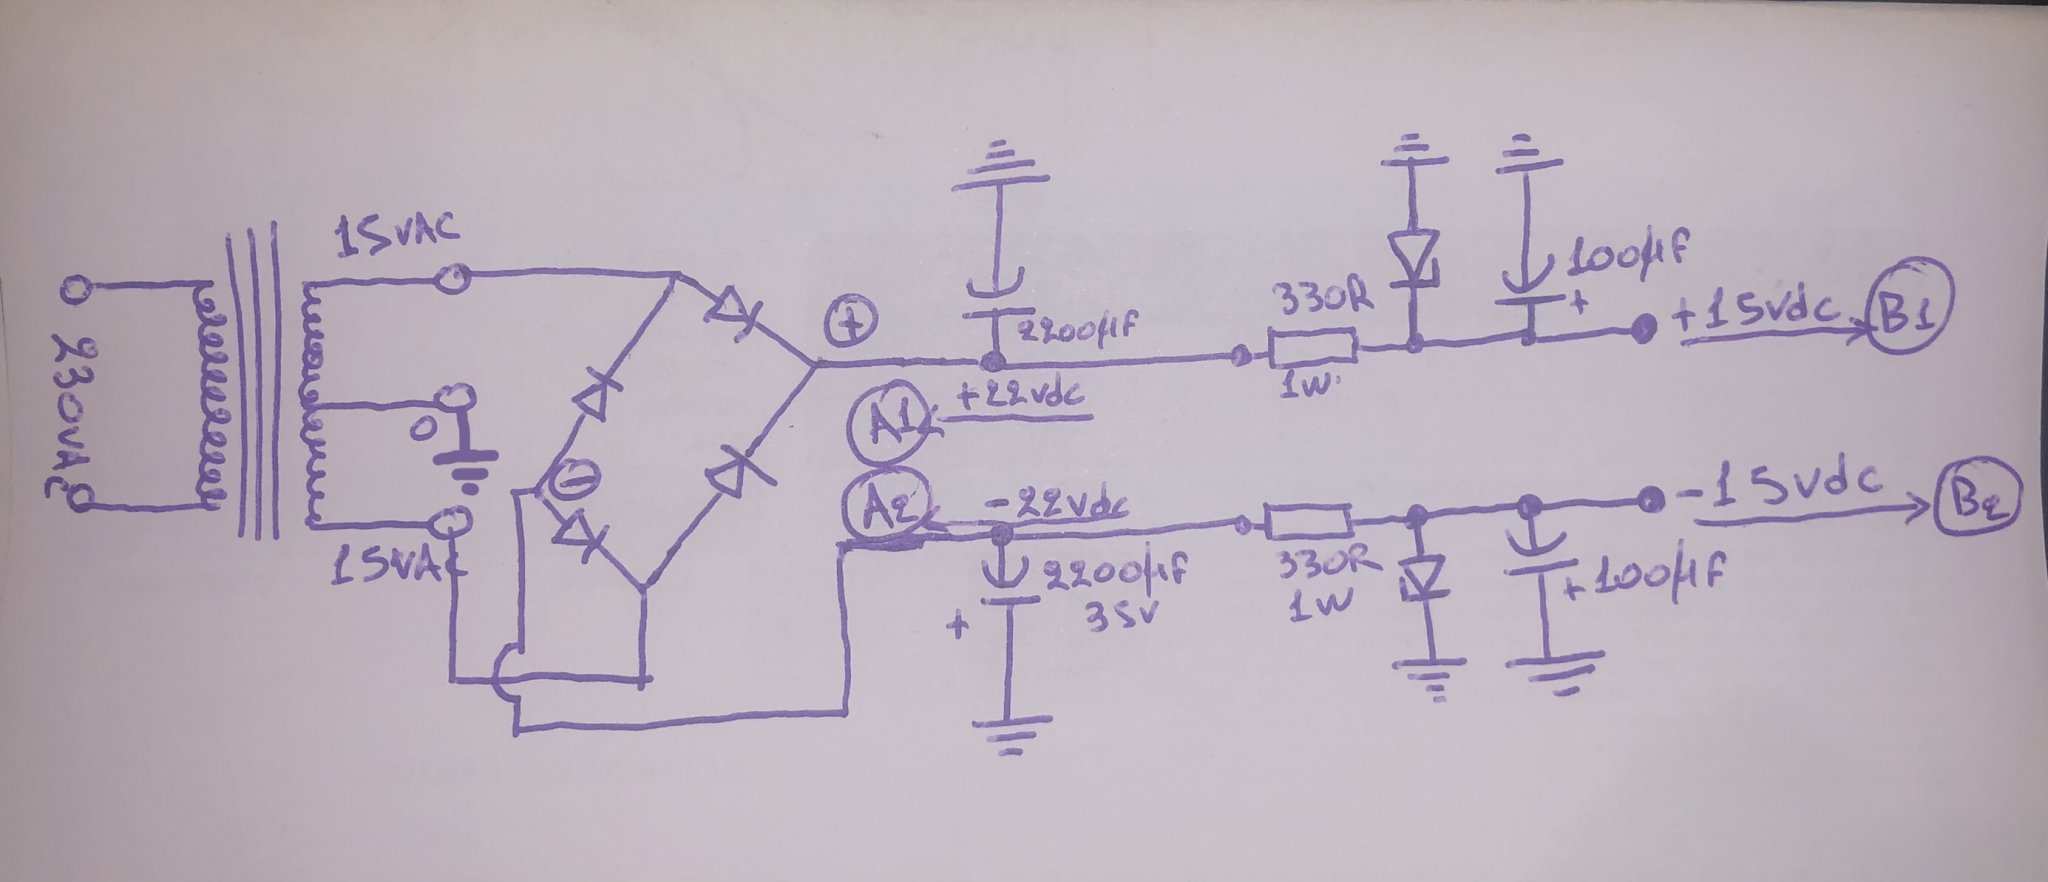 15VAC
230VAC
0
15VAC
+
-
2200µF
+22vdc
A1
A2
-22vdc
2200µF
35V
+
330R
1W
100µF
+
+15vdc
B1
330R
1W
+100µF
-15vdc
B2